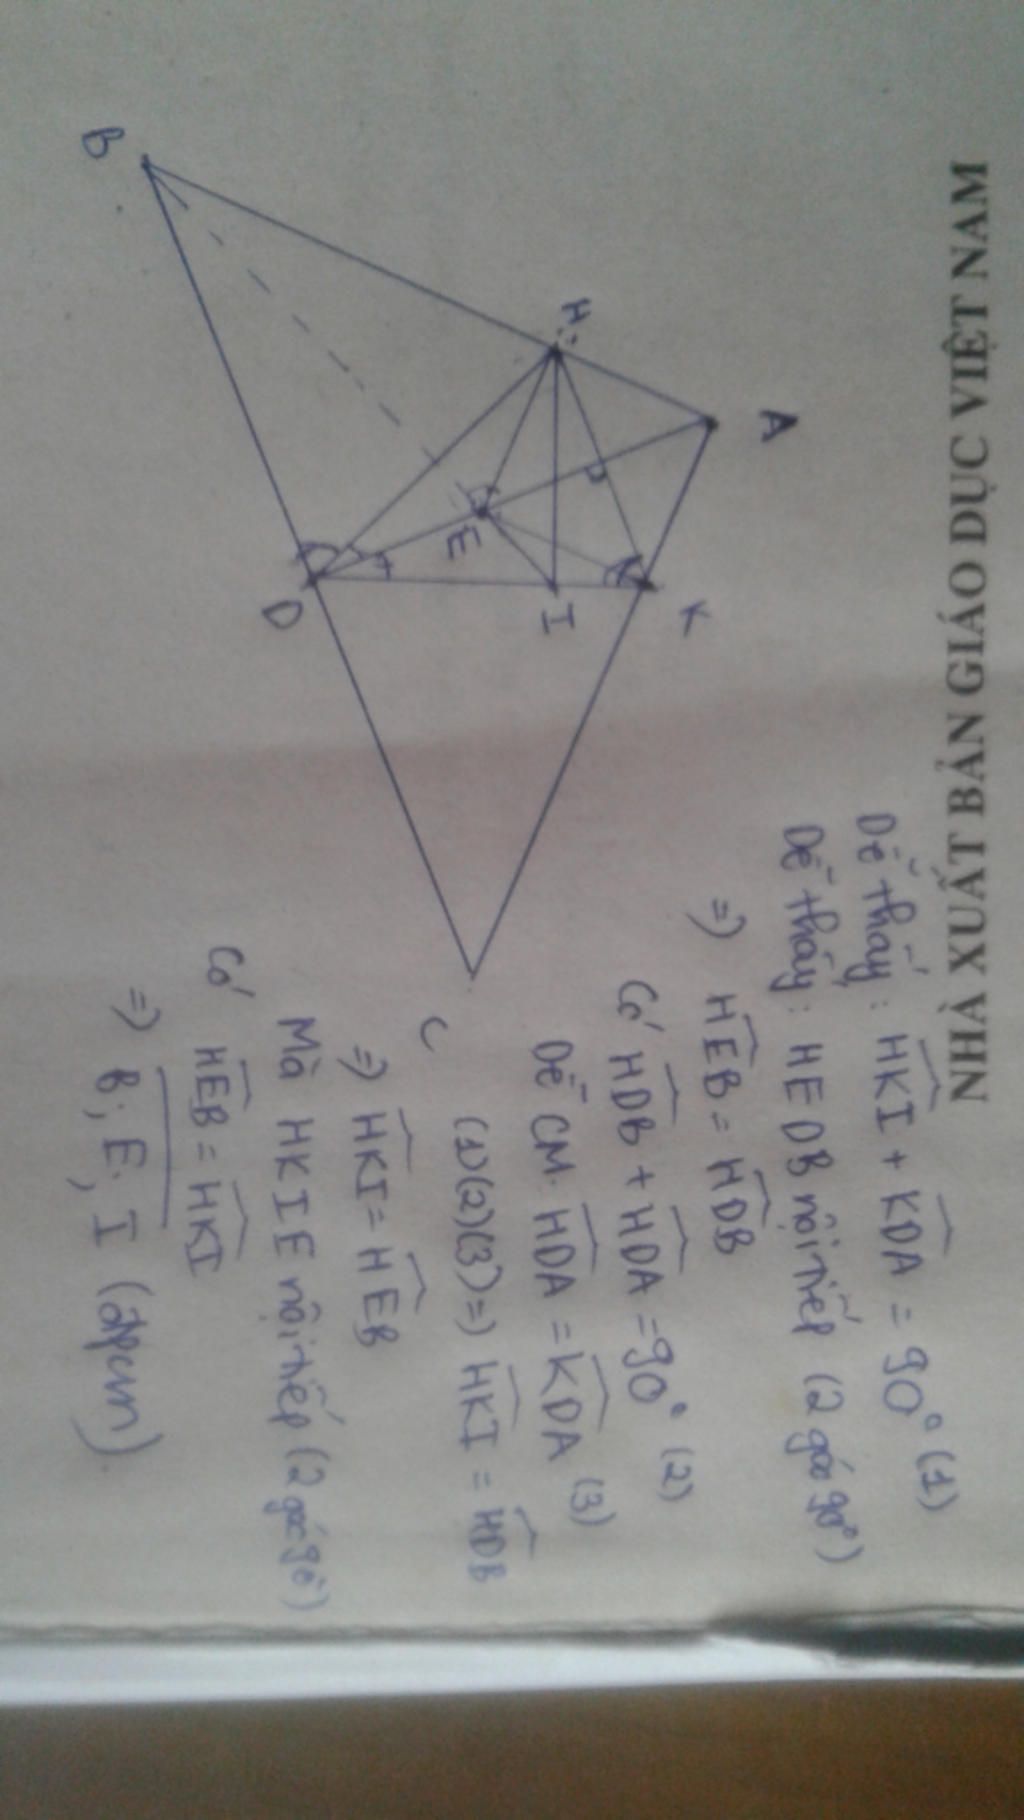 NHÀ XUẤT BẢN GIÁO DỤC VIỆT NAM
A
H
K
B
E
I
D
C
Dễ thấy: HKI + KDA = 90° (1)
Dễ thấy: HEDB nội tiếp (2 góc 90°)
=) HEB = HDB
Có HDB + HDA = 90° (2)
Dễ CM. HDA = KDA (3)
(1)(2)(3) =) HKI = HDB
=) HKI = HEB
Mà HKIE nội tiếp (2 góc 90)
Có HEB = HKI
=) B; E; I (đpcm)